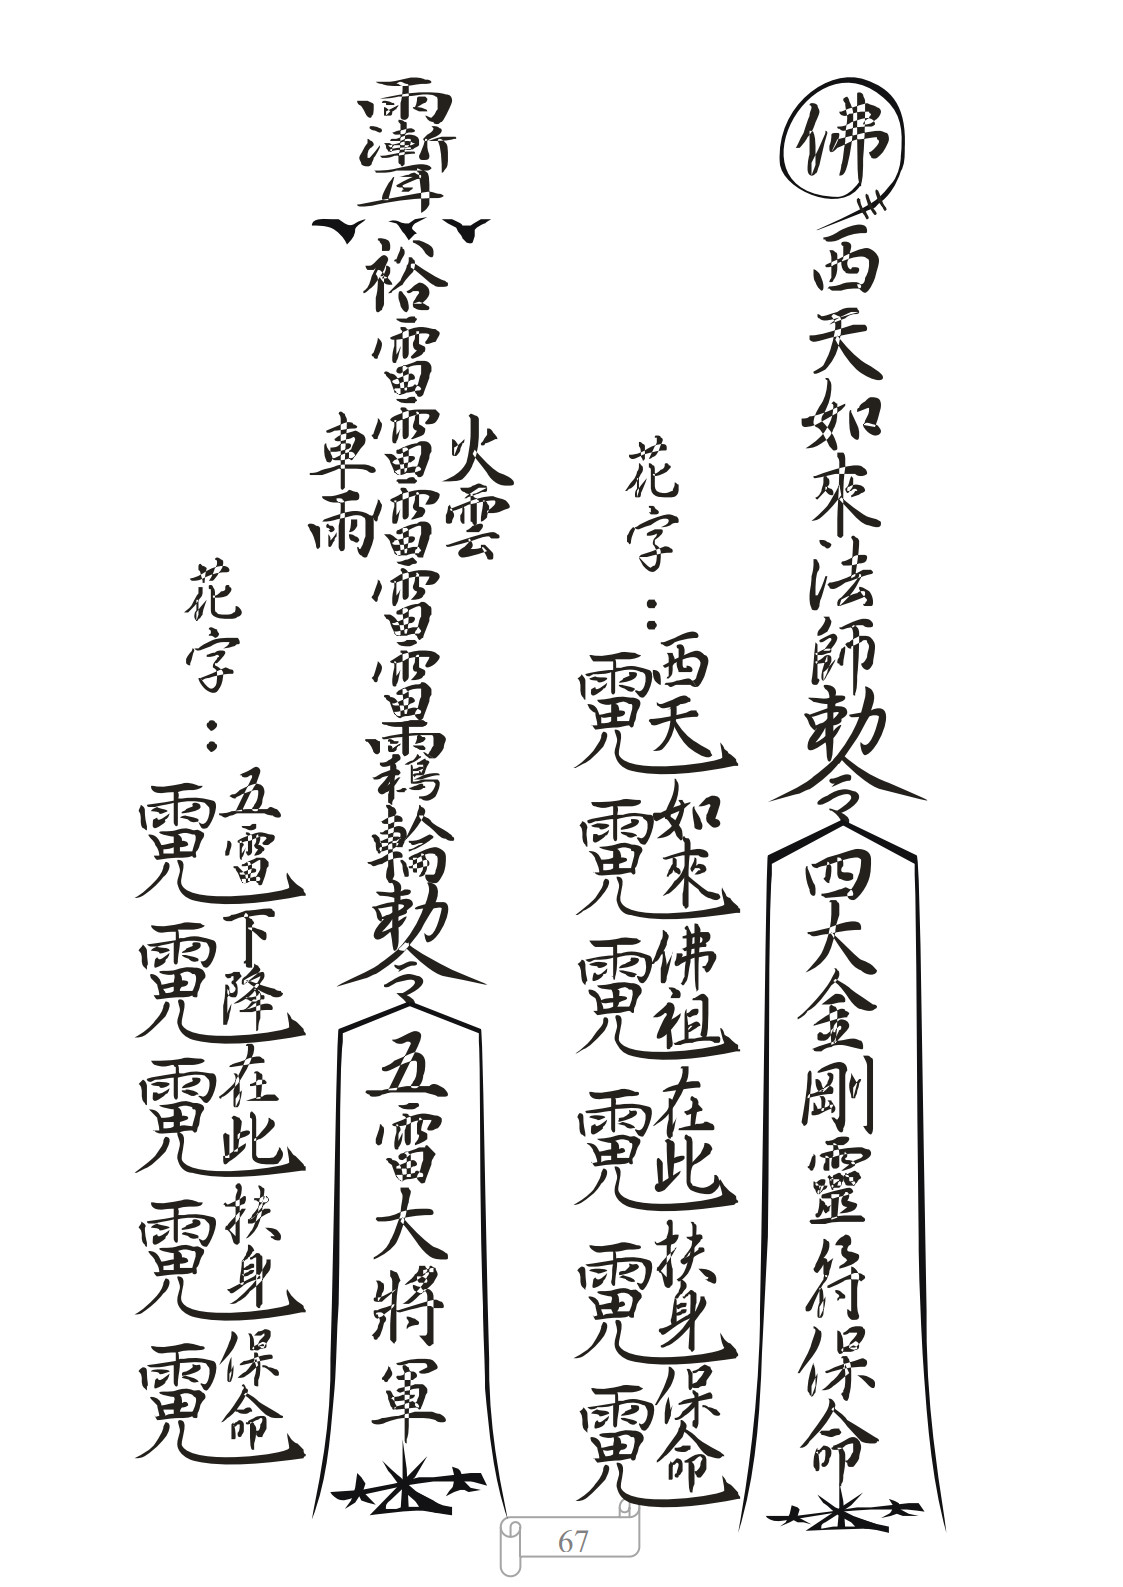 佛
西天如來法師敕令
四大金剛靈符保命
花字：
西天
如來
佛祖
在此
扶身
保命
裕雷雷雷雷雷
火雲
車雨
輪敕令
五雷大將軍
花字：
五雷
下降
在此
扶身
保命
67